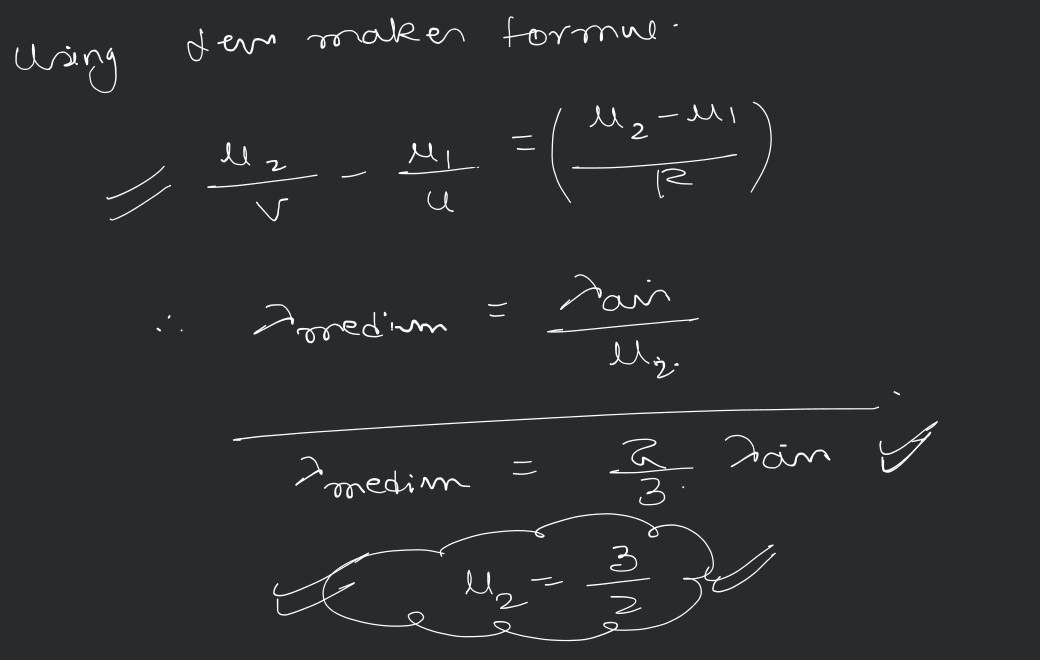 Using lens maker formul.
⇒ μ₂/v - μ₁/u = ((μ₂-μ₁)/R)
∴ λmedium = λair/μ₂.
λmedium = 2/3 λair
μ₂ = 3/2